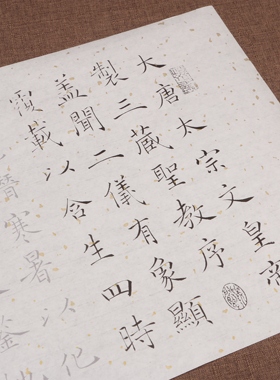 大唐太宗文皇帝
製三藏聖教序
盖聞二儀有象顯
覆載以含生四時
潛寒暑以化
鑒